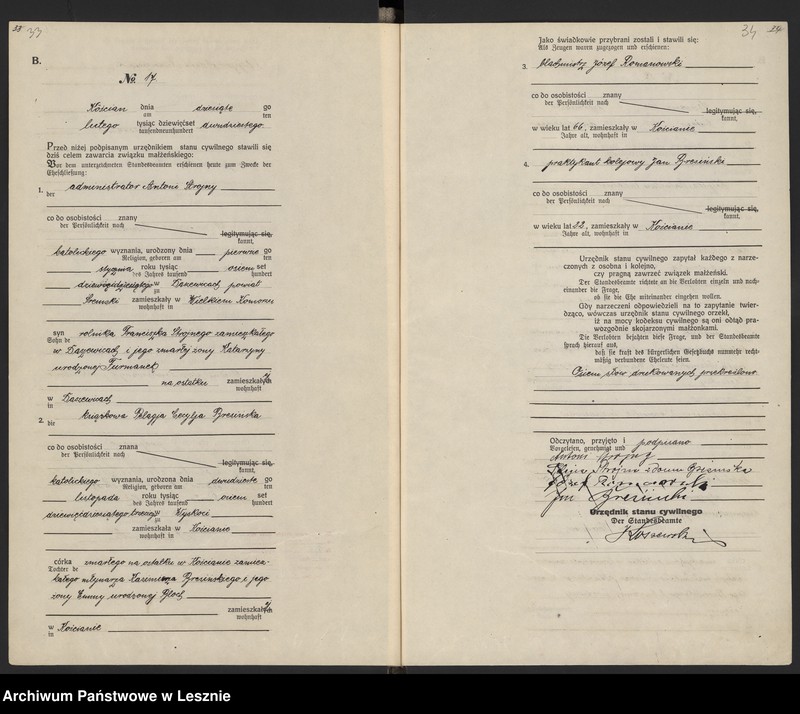 33
B.
No. 17
Kościan dnia dziesiątego
am ten
lutego tysiąc dziewięćset dwudziestego
tausendneunhundert
Przed niżej podpisanym urzędnikiem stanu cywilnego stawili się
dziś celem zawarcia związku małżeńskiego:
Vor dem unterzeichneten Standesbeamten erschienen heute zum Zwecke der
Eheschließung:
1. administrator Antoni Strojny
der
co do osobistości znany
der Persönlichkeit nach
legitymując się,
kannt,
katolickiego wyznania, urodzony dnia pierwszego
Religion, geboren am ten
stycznia roku tysiąc osiem set
des Jahres tausend hundert
dziewięćdziesiątego w powiat
zu
Śremski zamieszkały w Wielkiem Komorze
wohnhaft in
syn rolnika Franciszka Strojnego zamieszkałego
Sohn de
w i jego zmarłej żony Katarzyny
urodzonej Furmanek
na ostatku zamieszkałych
wohnhaft
w
in
2. książkowa Pelagja Cecylja Brzezińska
die
co do osobistości znana
der Persönlichkeit nach
legitymując się,
kannt,
katolickiego wyznania, urodzona dnia dwudziestego
Religion, geboren am ten
listopada roku tysiąc osiem set
des Jahres tausend hundert
dziewięćdziesiątego trzeciego w Wyskoci
zu
zamieszkała w Kościanie
wohnhaft in
córka zmarłego na ostatku w Kościanie zamiesz-
Tochter de
kałego młynarza Kazimierza Brzezińskiego i jego
żony Emmy urodzonej Bloch
zamieszkałych
wohnhaft
w Kościanie
in
34
Jako świadkowie przybrani zostali i stawili się:
Als Zeugen waren zugezogen und erschienen:
3. Józef Romanowski
co do osobistości znany
der Persönlichkeit nach
legitymując się,
kannt,
w wieku lat 66, zamieszkały w Kościanie
Jahre alt, wohnhaft in
4. praktykant kolejowy Jan Brzeziński
co do osobistości znany
der Persönlichkeit nach
legitymując się,
kannt,
w wieku lat 22, zamieszkały w Kościanie
Jahre alt, wohnhaft in
Urzędnik stanu cywilnego zapytał każdego z narze-
czonych z osobna i kolejno,
czy pragną zawrzeć związek małżeński.
Der Standesbeamte richtete an die Verlobten einzeln und nach-
einander die Frage,
ob sie die Ehe miteinander eingehen wollen.
Gdy narzeczeni odpowiedzieli na to zapytanie twier-
dząco, wówczas urzędnik stanu cywilnego orzekł,
iż na mocy kodeksu cywilnego są oni odtąd pra-
wozgodnie skojarzonymi małżonkami.
Die Verlobten bejahten diese Frage, und der Standesbeamte
sprach hierauf aus,
daß sie kraft des bürgerlichen Gesetzbuchs nunmehr recht-
mäßig verbundene Eheleute seien.
Osiem słów drukowanych przekreślono.
Odczytano, przyjęto i podpisano
Vorgelesen, genehmigt und
Antoni Strojny
Strojna z domu Brzezińska
Józef Romanowski
Jan Brzeziński
Urzędnik stanu cywilnego
Der Standesbeamte
Archiwum Państwowe w Lesznie